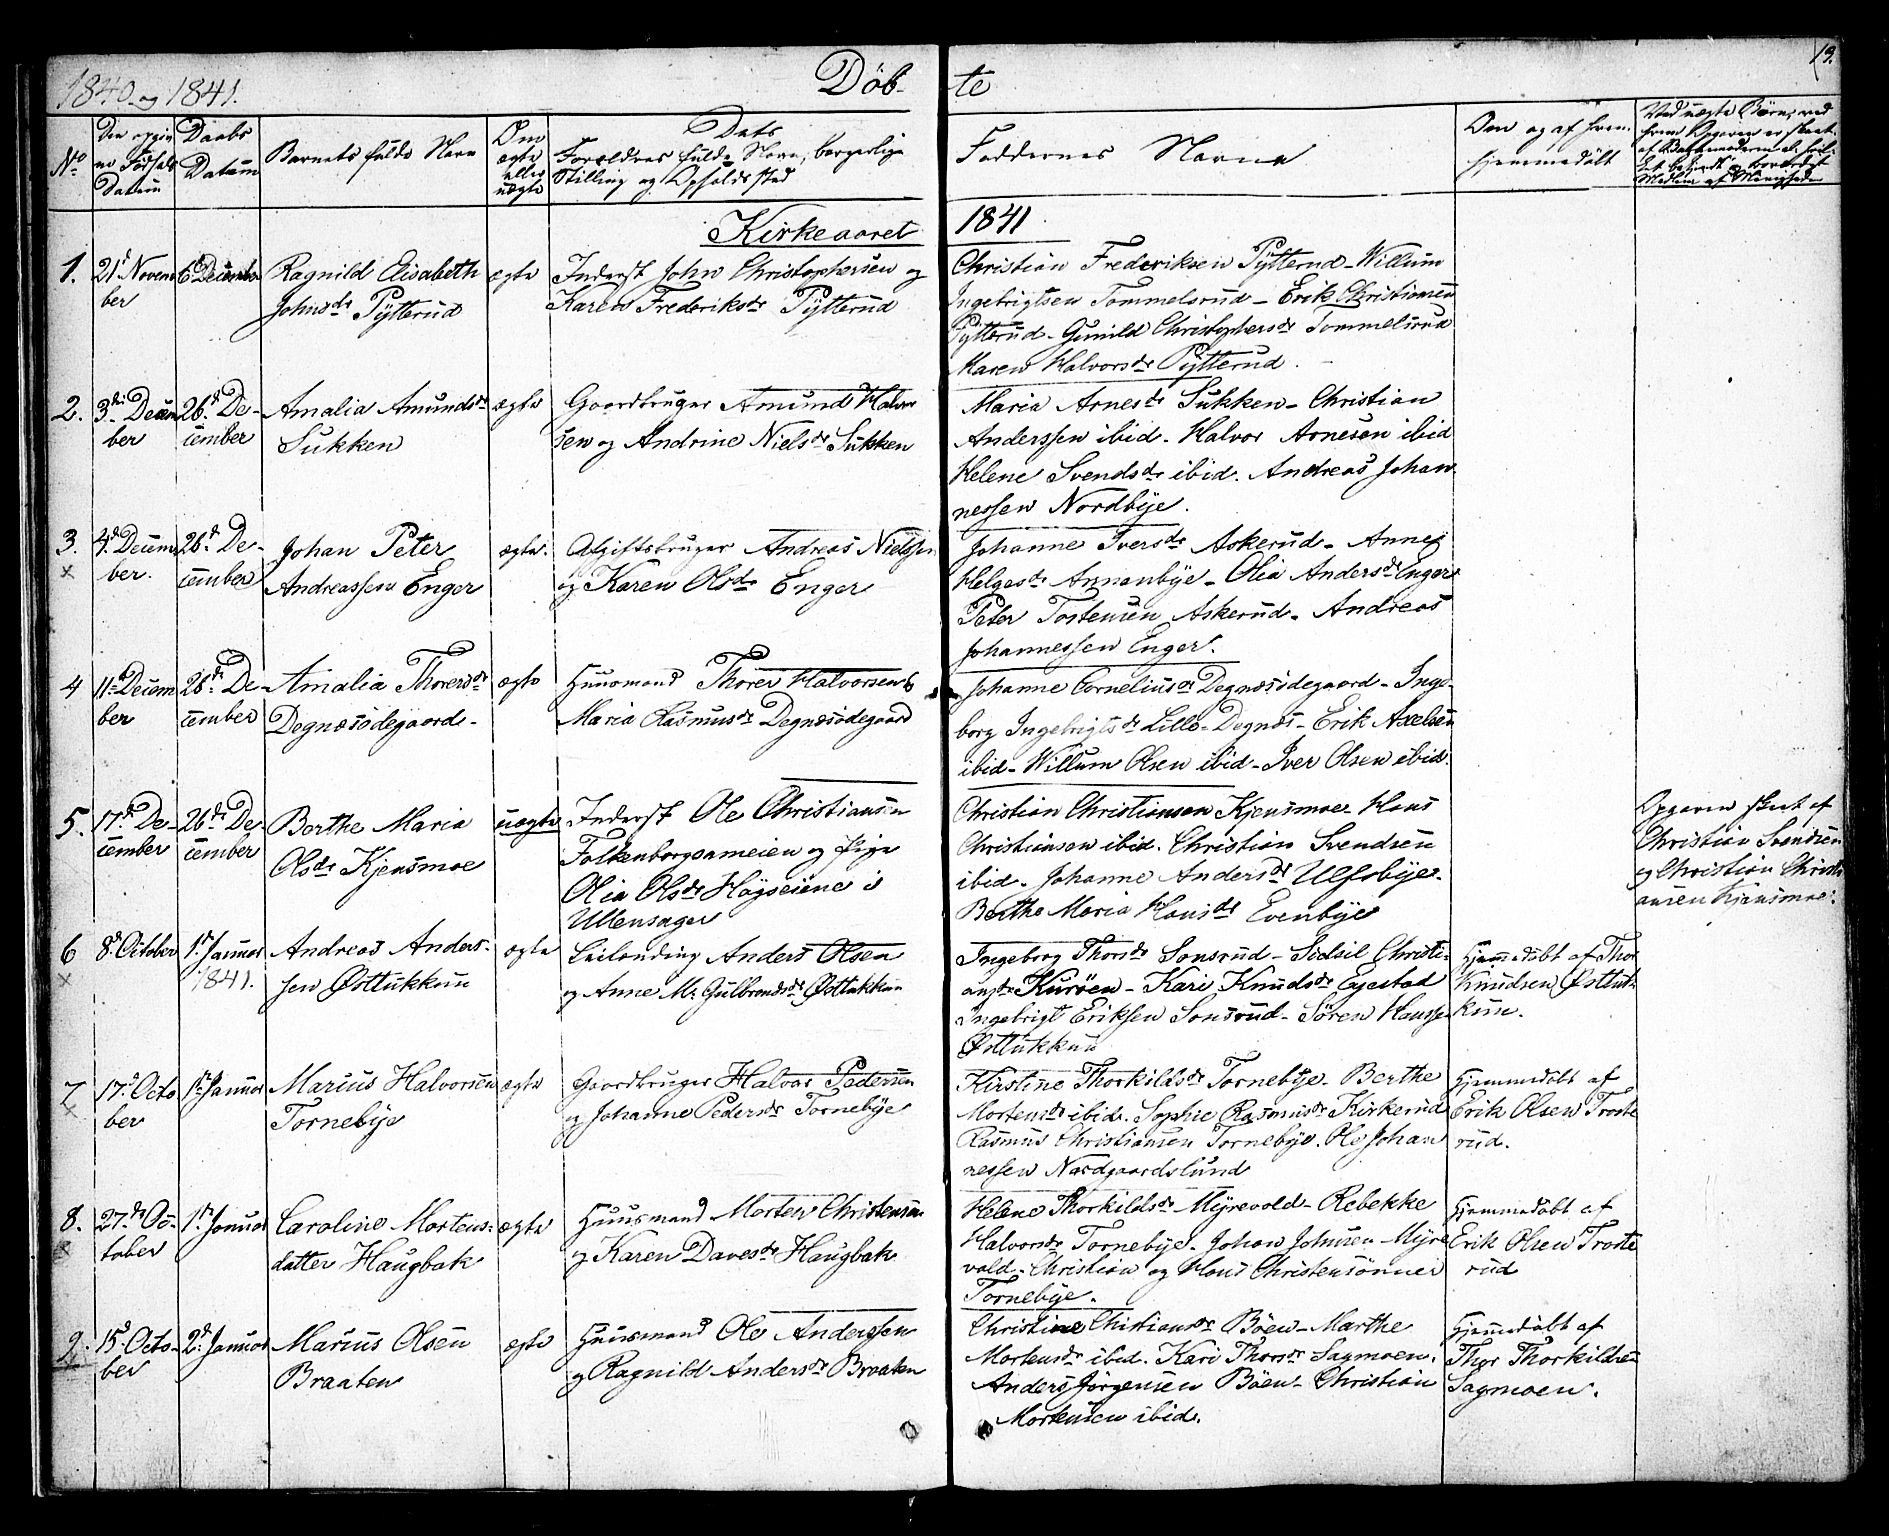 1840 og 1841.
Döb-
te
19.
No
Den opgiv
ne Födsels
Datum
Daabs
Datum
Barnets fulde Navn
Om
ægte
eller
uægte
Dets
Forældres fulde Navn, borgerlige
Stilling og Opholdssted
Faddernes Navne
Om og af hvem
hjemmedöbt
Ved uægte Börn, ved
hvem Opgaven er skeet
Medlem af Menigheden
Kirkeaaret
1841
1.
21d Novem
ber
6 December
Ragnild Elisabeth
Johnsdr Pÿtterud
ægte
Inderst John Christophersen og
Karen Frederiksdr Pÿtterud
Christian Frederiksen Pÿtterud - Willum
Ingebrigtsen Tommelsrud - Erik Christiansen
Pÿtterud - Gunild Christophersdr Tommelsrud
Maren Halvorsdr Pÿtterud.
2.
3di Decem
ber
26d De-
cember
Amalia Amundsdr
Sukken
ægte
Gaardbruger Amund Halvor
sen og Andrine Nielsdr Sukken
Maria Arnesdr Sukken - Christian
Anderssen ibid. Halvor Arnesen ibid
Helene Svendsdr ibid. Andreas Johan-
nessen Nordbÿe.
3.
x
4d Decem
ber.
26d De-
cember
Johan Peter
Andreassen Enger
ægte.
Afgiftsbruger Andreas Nielssen
og Karen Olsdr Enger
Johanne Iversdr Askerud - Anne
Helgesdr Annanbÿe - Olia Andersdr Enger
Peter Tostensen Askerud - Andreas
Johannessen Enger.
4
11te Decem
ber
26de De-
cember
Amalia Thorersdr
Degnæsödegaard -
ægte
Huusmand Thorer Halvorsen &
Maria Rasmusdr Degnæsödegaard
Johanne Corneliusdr Degnæsödegaard - Inge-
borg Ingebrigtsdr Lille-Degnæs - Erik Axelsen
ibid - Willum Olsen ibid - Iver Olsen ibid.
5.
17d De-
cember
26d De-
cember
Berthe Maria
Olsdr Kjensmoe
uægte
Inderst Ole Christiansen
Falkenborgsameien og Pige
Olia Olsdr Höyseiene i
Ullensager
Christian Christiansen Kjensmoe - Hans
Christiansen ibid. Christian Svendsen
ibid. Johanne Andersdr Ulfsbÿe.
Berthe Maria Hansdr Evenbÿe
Opgaven skeet af
Christian Svendsen
og Christian Christi
ansen Kjensmoe.
6
x
8d October
1ste Januar
1841.
Andreas Anders-
sen Østtukkun
ægte
Leilænding Anders Olsen
og Anne M. Gulbrandsdr Østtukkun
Ingeborg Thorsdr Sonsrud - Sidsil Christi-
ansdr Kuröen - Kari Knudsdr Egestad
Ingebrigt Eriksen Sonsrud - Sören Hansse
Østtukkun
Hjemmedöbt af Thor
Knudsen Østtuk-
kun.
7
x
17d Octo
ber
1ste Januar
Marius Halvorsen
Tornebÿe
ægte
Gaardbruger Halvor Pedersen
og Johanne Pedersdr Tornebÿe
Kirstine Thorkildsdr Tornebÿe - Berthe
Mortensdr ibid. Sophie Rasmusdr Kirkerud
Rasmus Christiansen Tornebÿe. Ole Johan
nessen Nordgaardslund
Hjemmedöbt af
Erik Olsen Troste
rud.
8.
x
27de Oc-
tober
1ste Januar
Caroline Mortens-
datter Haugbak
ægte
Huusmand Morten Christensen
og Karen Davesdr Haugbak
Helene Thorkildsdr Mÿrevold - Rebekke
Halvorsdr Tornebÿe. Johan Johnsen Mÿre
vold. Christian og Hans Christensönner
Tornebÿe.
Hjemmedöbt af
Erik Olsen Troste
rud
9.
15d Octo-
ber
2d Januar
Marius Olsen
Braaten
ægte
Huusmand Ole Anderssen
og Ragnild Andersdr Braaten
Christine Chistiansdr Böen - Marthe
Mortensdr ibid. Kari Thorsdr Sagmoen.
Anders Jörgensen Böen - Christian
Mortensen ibid.
Hjemmedöbt af
Thor Thorkildsen
Sagmoen.